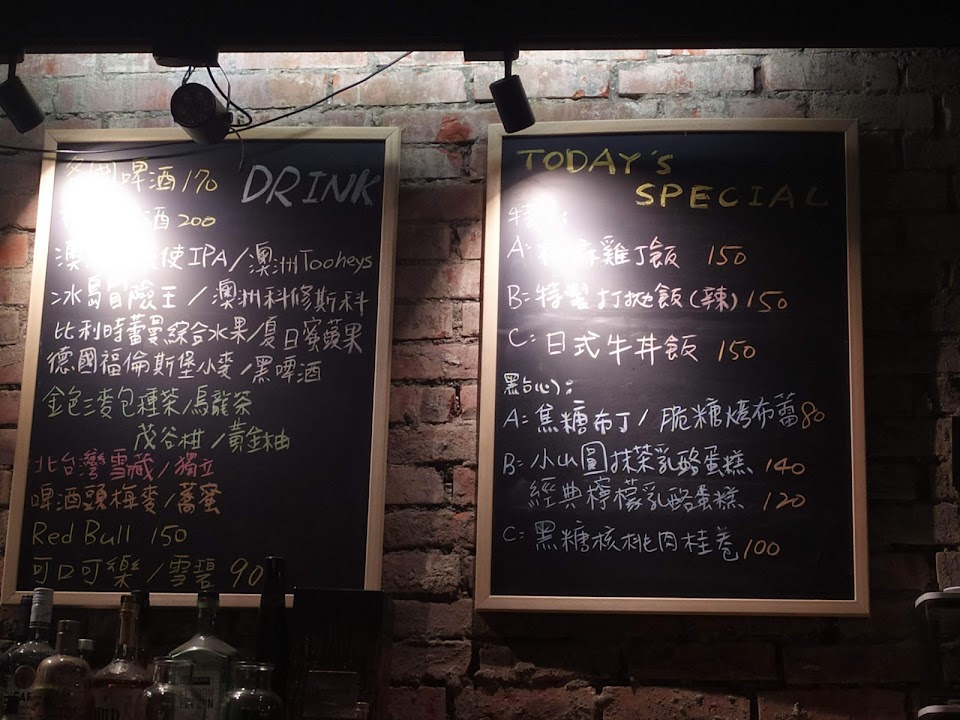 各國啤酒170
DRINK
酒200
澳 使IPA/澳洲Tooheys
冰島冒險王/澳洲科修斯科
比利時蕾曼綜合水果/夏日蜜蘋果
德國福倫斯堡小麥/黑啤酒
金色3麥包種茶/烏龍茶
茂谷柑/黃金柚
北台灣雪藏/獨立
啤酒頭梅麥/蕎蜜
Red Bull 150
可口可樂/雪碧 90
TODAY's
SPECIAL
特
A: 雞丁飯 150
B:特製打拋飯(辣)150
C:日式牛丼飯 150
點心:
A:焦糖布丁/脆糖烤布蕾80
B:小山圓抹茶乳酪蛋糕 140
經典檸檬乳酪蛋糕 120
C:黑糖核桃肉桂卷100